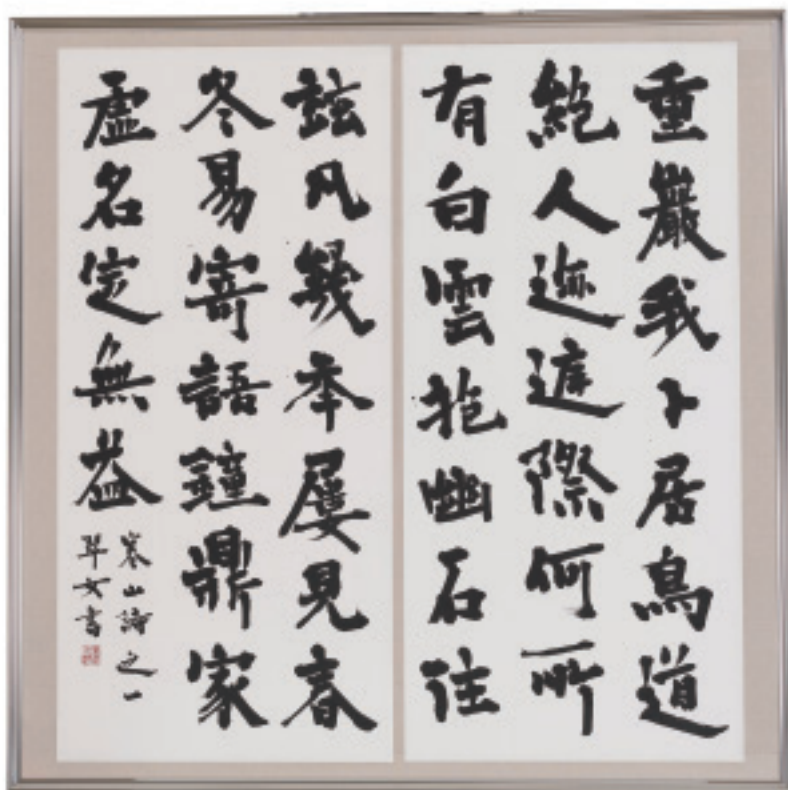 重巖我卜居鳥道
絶人迹庭際何所
有白雲抱幽石住
玆凡幾年屢見春
冬易寄語鐘鼎家
虚名定無益
寒山詩之一
書